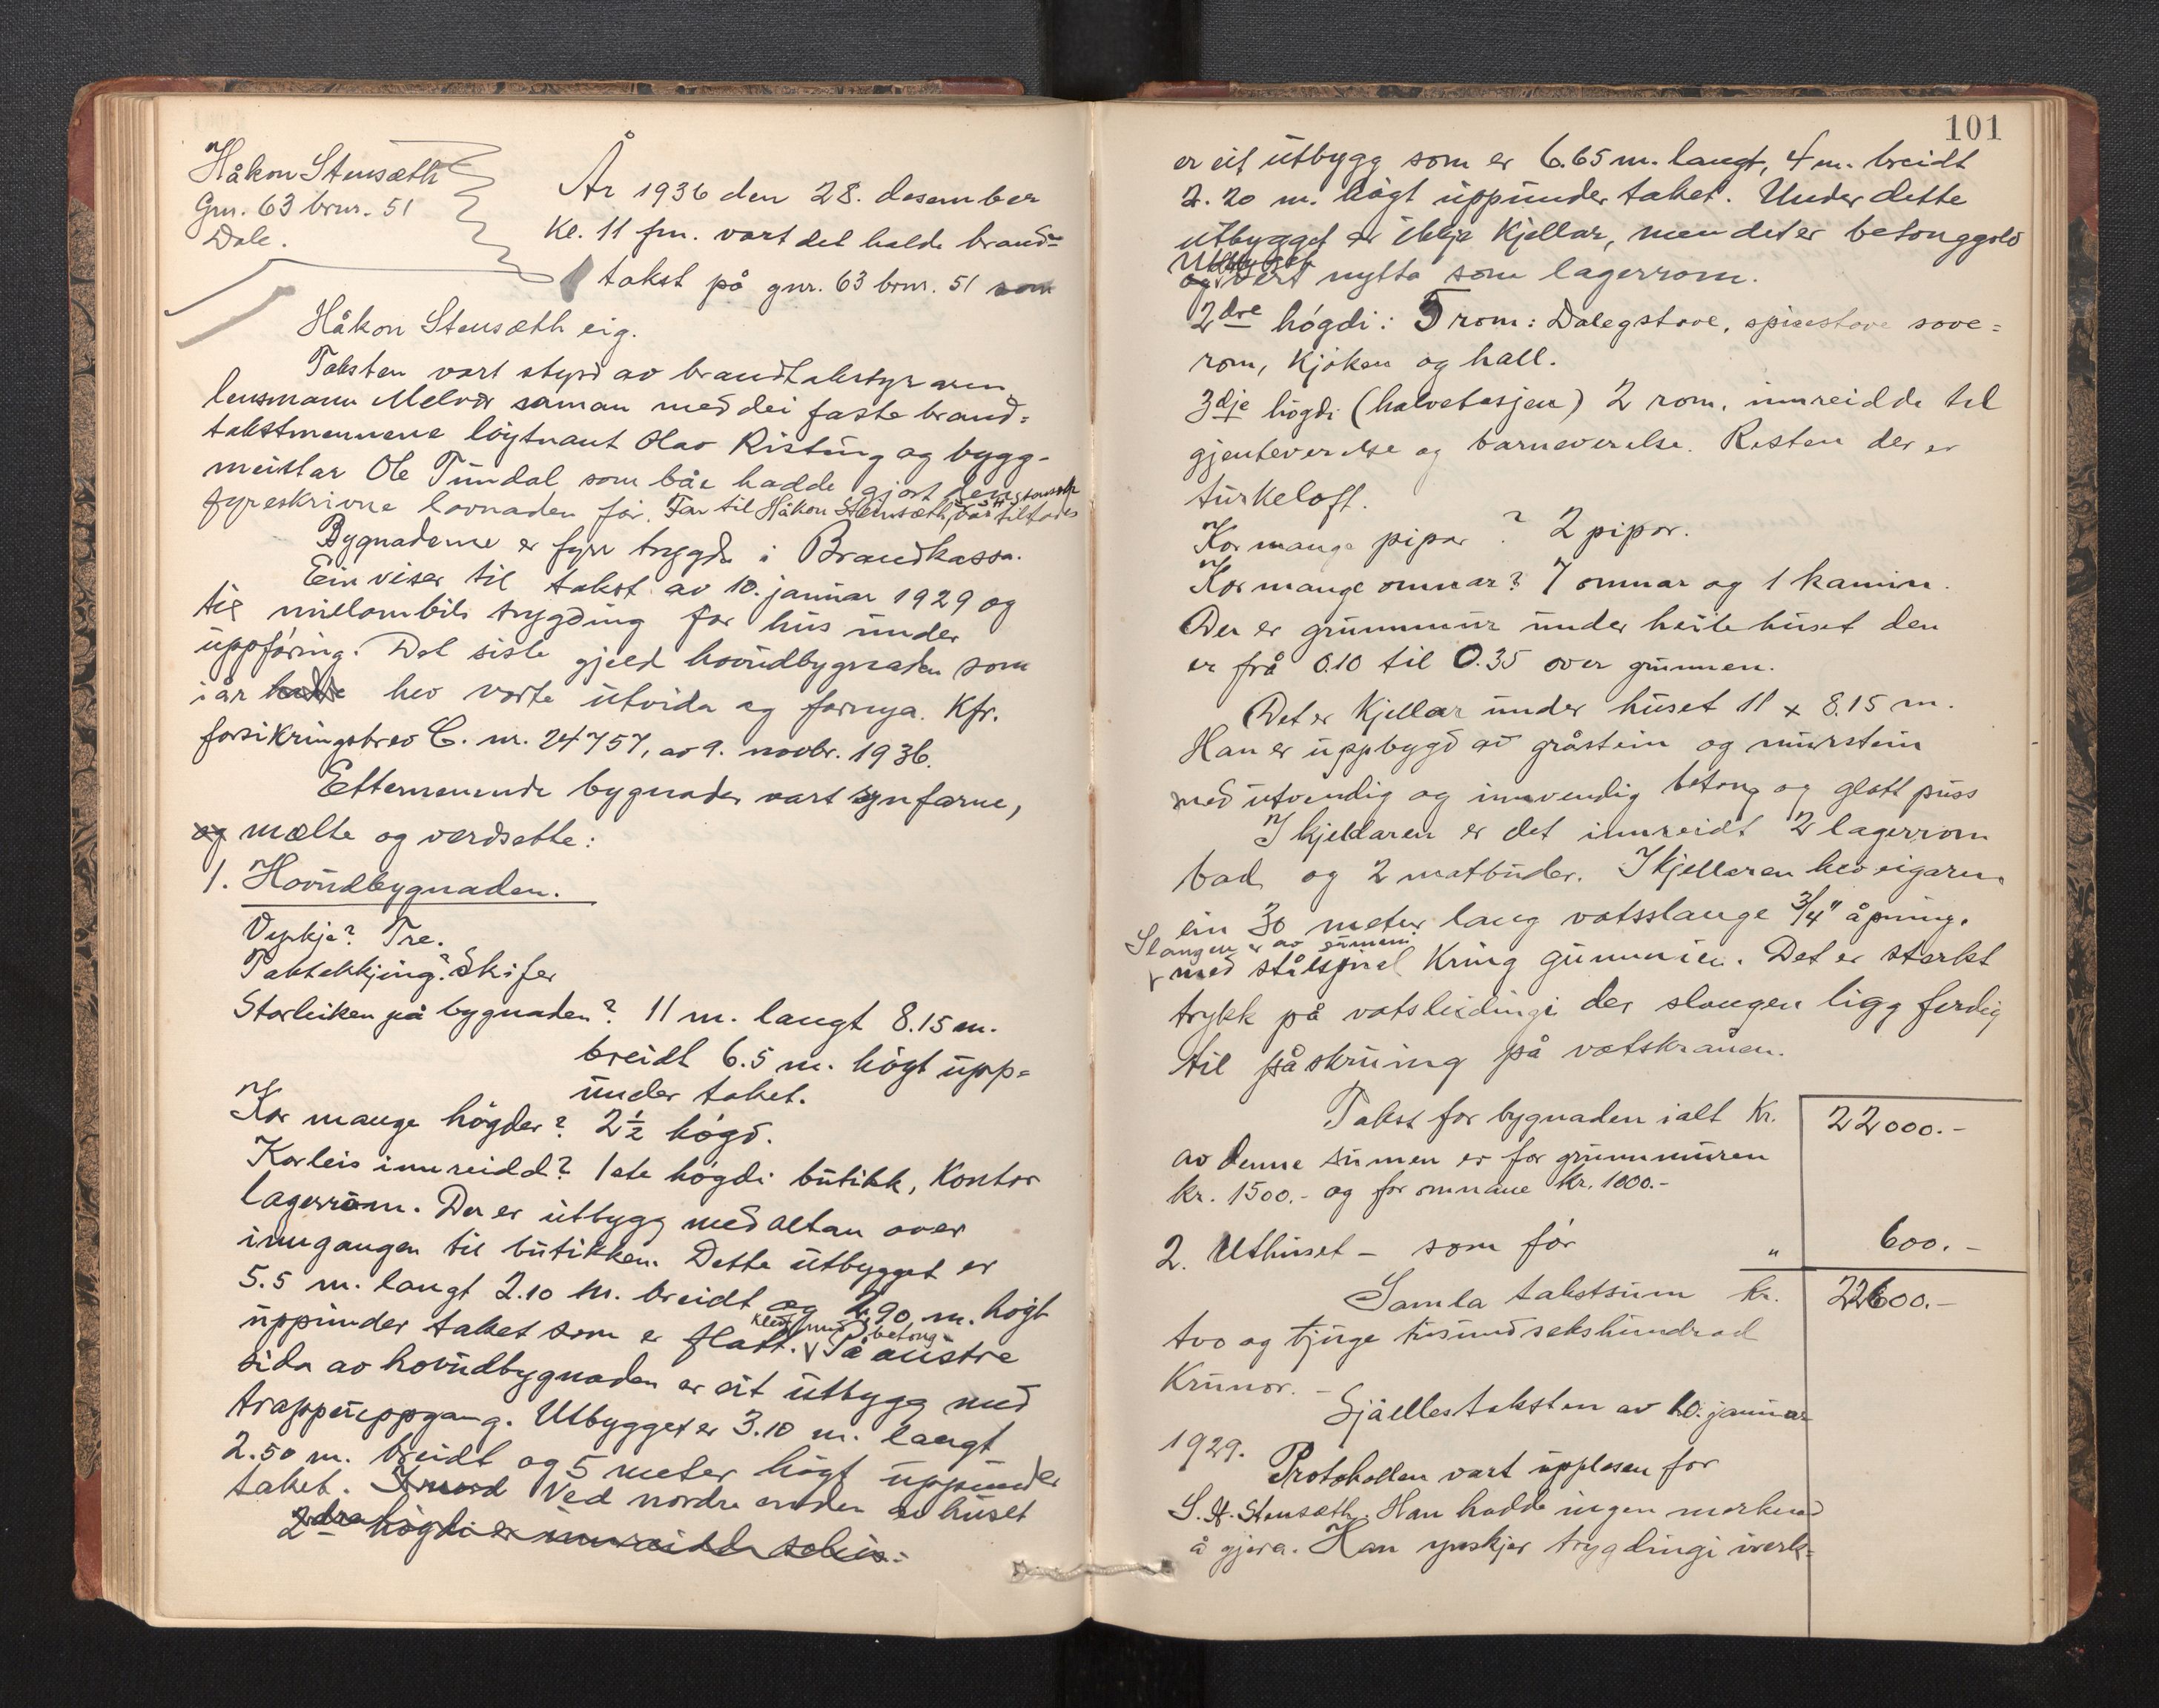 Håkon Stensæth
Gnr. 63 brnr. 51
Dale.
År 1936 den 28. desember
Kl. 11 fm. vart det halde brand-
takst på gnr. 63 brnr. 51 som
Håkon Stensæth eig.
Taksten vart styrd av brandtakstyraren
lensmann Melvær saman med dei faste brand-
takstmennene löytnant Olav Risting og bygg-
meistar Ole Tundal som båe hadde gjort den
fyreskrivne lovnaden før. Far til Håkon Stensæth, var tilstades
Bygnaderne er fyrr trygda i Brandkassa.
Ein viser til takst av 10. januar 1929 og
til millombils trygding for hus under
uppföring. Det siste gjeld hovudbygnaden som
i år hadde hev vorte utvida og fornya. Kfr.
forsikringsbrev C. nr. 24757, av 9. novbr. 1936.
Etternemnde bygnader vart synfarne,
og mælte og verdsette:
1. Hovudbygnaden.
Vyrkje? Tre.
Taktekkjing? Skifer
Storleiken på bygnaden? 11 m. langt 8.15 m.
breidt 6.5 m. högt upp-
under taket.
Kor mange högder? 2½ högd.
Korleis innreidd? 1ste högdi butikk, Kontor
lagerrom. Der er utbygg med altan over
inngangen til butikken. Dette utbygget er
5.5 m. langt 2.10 m. breidt og 2.90 m. högt
uppunder taket som er flatt. kledt med betong. På austre
sida av hovudbygnaden er eit utbygg med
trappeuppgang. Utbygget er 3.10 m. langt
2.50 m. breidt og 5 meter högt uppunder
taket. I nord Ved nordre enden av huset
2dre högdi er innreidde soleis:
101
er eit utbygg som er 6.65 m. langt, 4 m. breidt
2.20 m. högt uppunder taket. Under dette
utbygget er ikkje Kjellar, men det er betonggolv
og Utbygget vert nytta som lagerrom.
2dre högdi: 5 rom: Dalegstove, spisestove sove-
rom, Kjöken og hall.
3dje högdi (halvetasjen) 2 rom, innreidde til
gjenteverelse og barneverelse. Resten der er
turkeloft.
Kor mange pipor? 2 pipor.
Kor mange omnar? 7 omnar og 1 kamin.
Der er grunnmur under heile huset den
er frå 0.10 til 0.35 over grunnen.
Det er Kjellar under huset 11 x 8.15 m.
Han er uppbygd av gråstein og murstein
med utvendig og innvendig betong og glatt puss
I kjellaren er det innreidt 2 lagerrom
bad og 2 matbuder. I kjellaren hev eigaren
ein 30 meter lang vatsslange 3/4" åpning.
Slangen er av gummi
med stålspiral Kring gummien. Det er sterkt
trykk på vatsleidingi der slangen ligg ferdig
til påskruing på vatskranen.
Takst for bygnaden ialt Kr. 22000.-
av denne sumen er for grunnmuren
kr. 1500.- og for omnane Kr. 1000.-
2. Uthuset - som för " 600.-
Samla takstsum kr. 22600.-
tvo og tjuge tusund sekshundrad
Krunor. -
Gjäelles taksten av 10. januar
1929.
Protokollen vart upplesen for
S. H. Stensæth. Han hadde ingen merknad
å gjera. Han ynskjer trygdingi iverk-